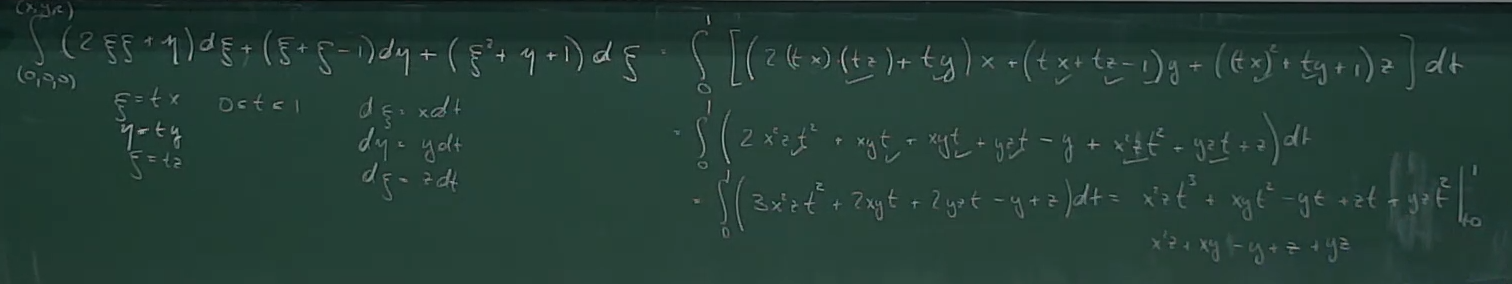 (x,y,z)
∫ (2ξζ + η)dξ + (ξ + ζ − 1)dη + (ξ² + η + 1)dζ = ∫₀¹ [(2(tx)(tz) + ty)x + (tx + tz − 1)y + ((tx)² + ty + 1)z] dt
(0,0,0)
ξ = tx 0 ≤ t ≤ 1 dξ = xdt
η = ty dη = ydt
ζ = tz dζ = zdt
= ∫₀¹ (2x²zt² + xyt + xyt + yzt − y + x²zt² + yzt + z)dt
= ∫₀¹ (3x²zt² + 2xyt + 2yzt − y + z)dt = x²zt³ + xyt² − yt + zt + yzt² |₀¹
x²z + xy − y + z + yz